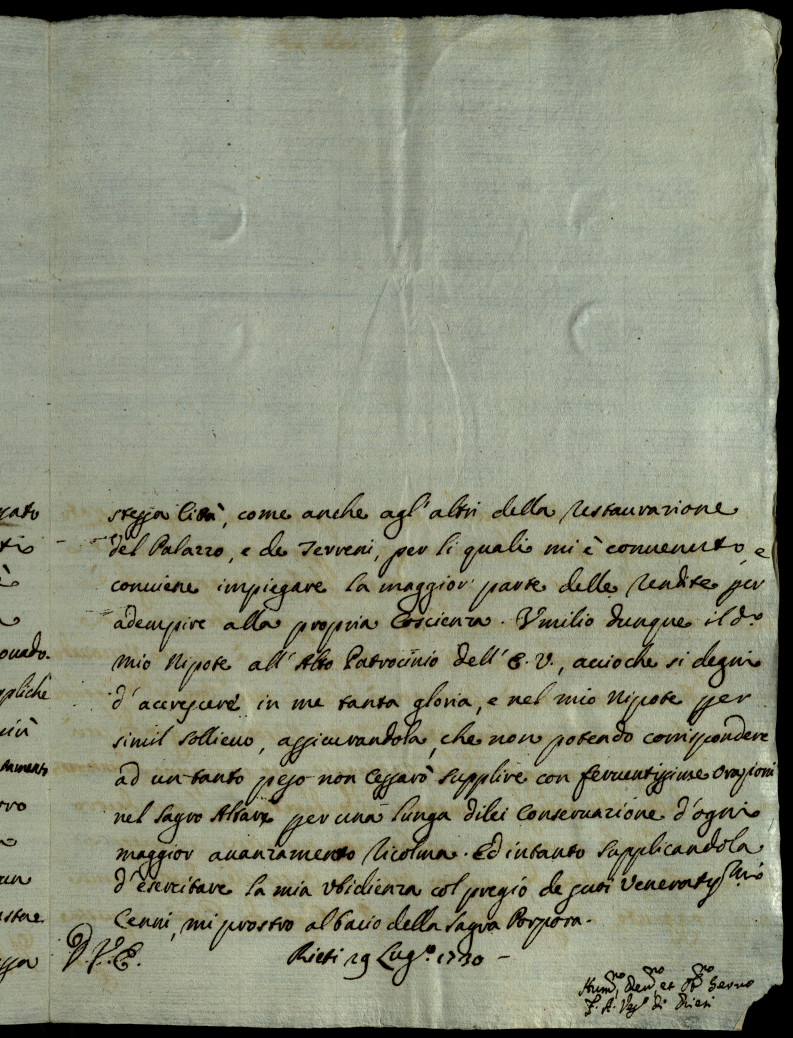 stessa Città, come anche agl'altri della restaurazione
del Palazzo, e de Terreni, per li quali mi è convenuto, e
conviene impiegare la maggior parte delle rendite per
adempire alla propria Coscienza. Umilio dunque il do
mio Nipote all'Alto Patrocinio dell'E. V., accioche si degni
d'accrescere in me tanta gloria, e nel mio Nipote per
simil sollievo, assicurandola, che non potendo corrispondere
ad un tanto peso non cessarò supplire con ferventissime orazioni
nel Sagro Altare per una lunga di lei Conservazione d'ogni
maggior avanzamento ricolma. Ed intanto supplicandola
d'esercitare la mia Ubidienza col pregio de suoi veneratissmi
Cenni, mi prostro al bacio della Sagra Porpora.
D. V. E. Rieti 29 Lugo 1730 -
Hummo, Devmo, et Obmo Servo
A. Vescо di Rieti
cato
ovado
tamento